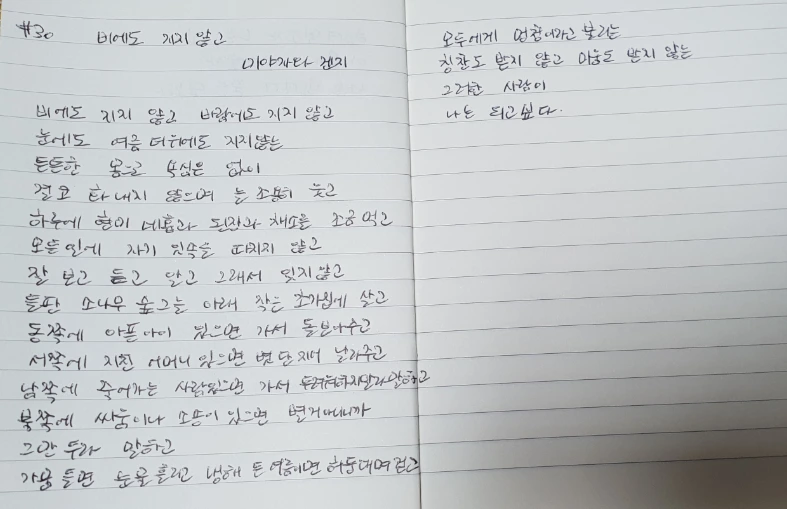 #30 비에도 지지 않고
미야자와 겐지
비에도 지지 않고 바람에도 지지 않고
눈에도 여름 더위에도 지지않는
튼튼한 몸으로 욕심은 없이
결코 화내지 않으며 늘 조용히 웃고
하루에 현미 네홉과 된장과 채소를 조금 먹고
모든 일에 자기 잇속을 따지지 않고
잘 보고 듣고 알고 그래서 잊지않고
들판 소나무 숲그늘 아래 작은 초가집에 살고
동쪽에 아픈아이 있으면 가서 돌보아주고
서쪽에 지친 어머니 있으면 볏단 지어 날라주고
남쪽에 죽어가는 사람있으면 가서 두려워하지말라 말하고
북쪽에 싸움이나 소송이 있으면 별거아니니까
그만 두라 말하고
가뭄 들면 눈물 흘리고 냉해 든 여름이면 허둥대며 걷고
모두에게 멍청이라고 불리는
칭찬도 받지 않고 미움도 받지 않는
그러한 사람이
나는 되고 싶다.